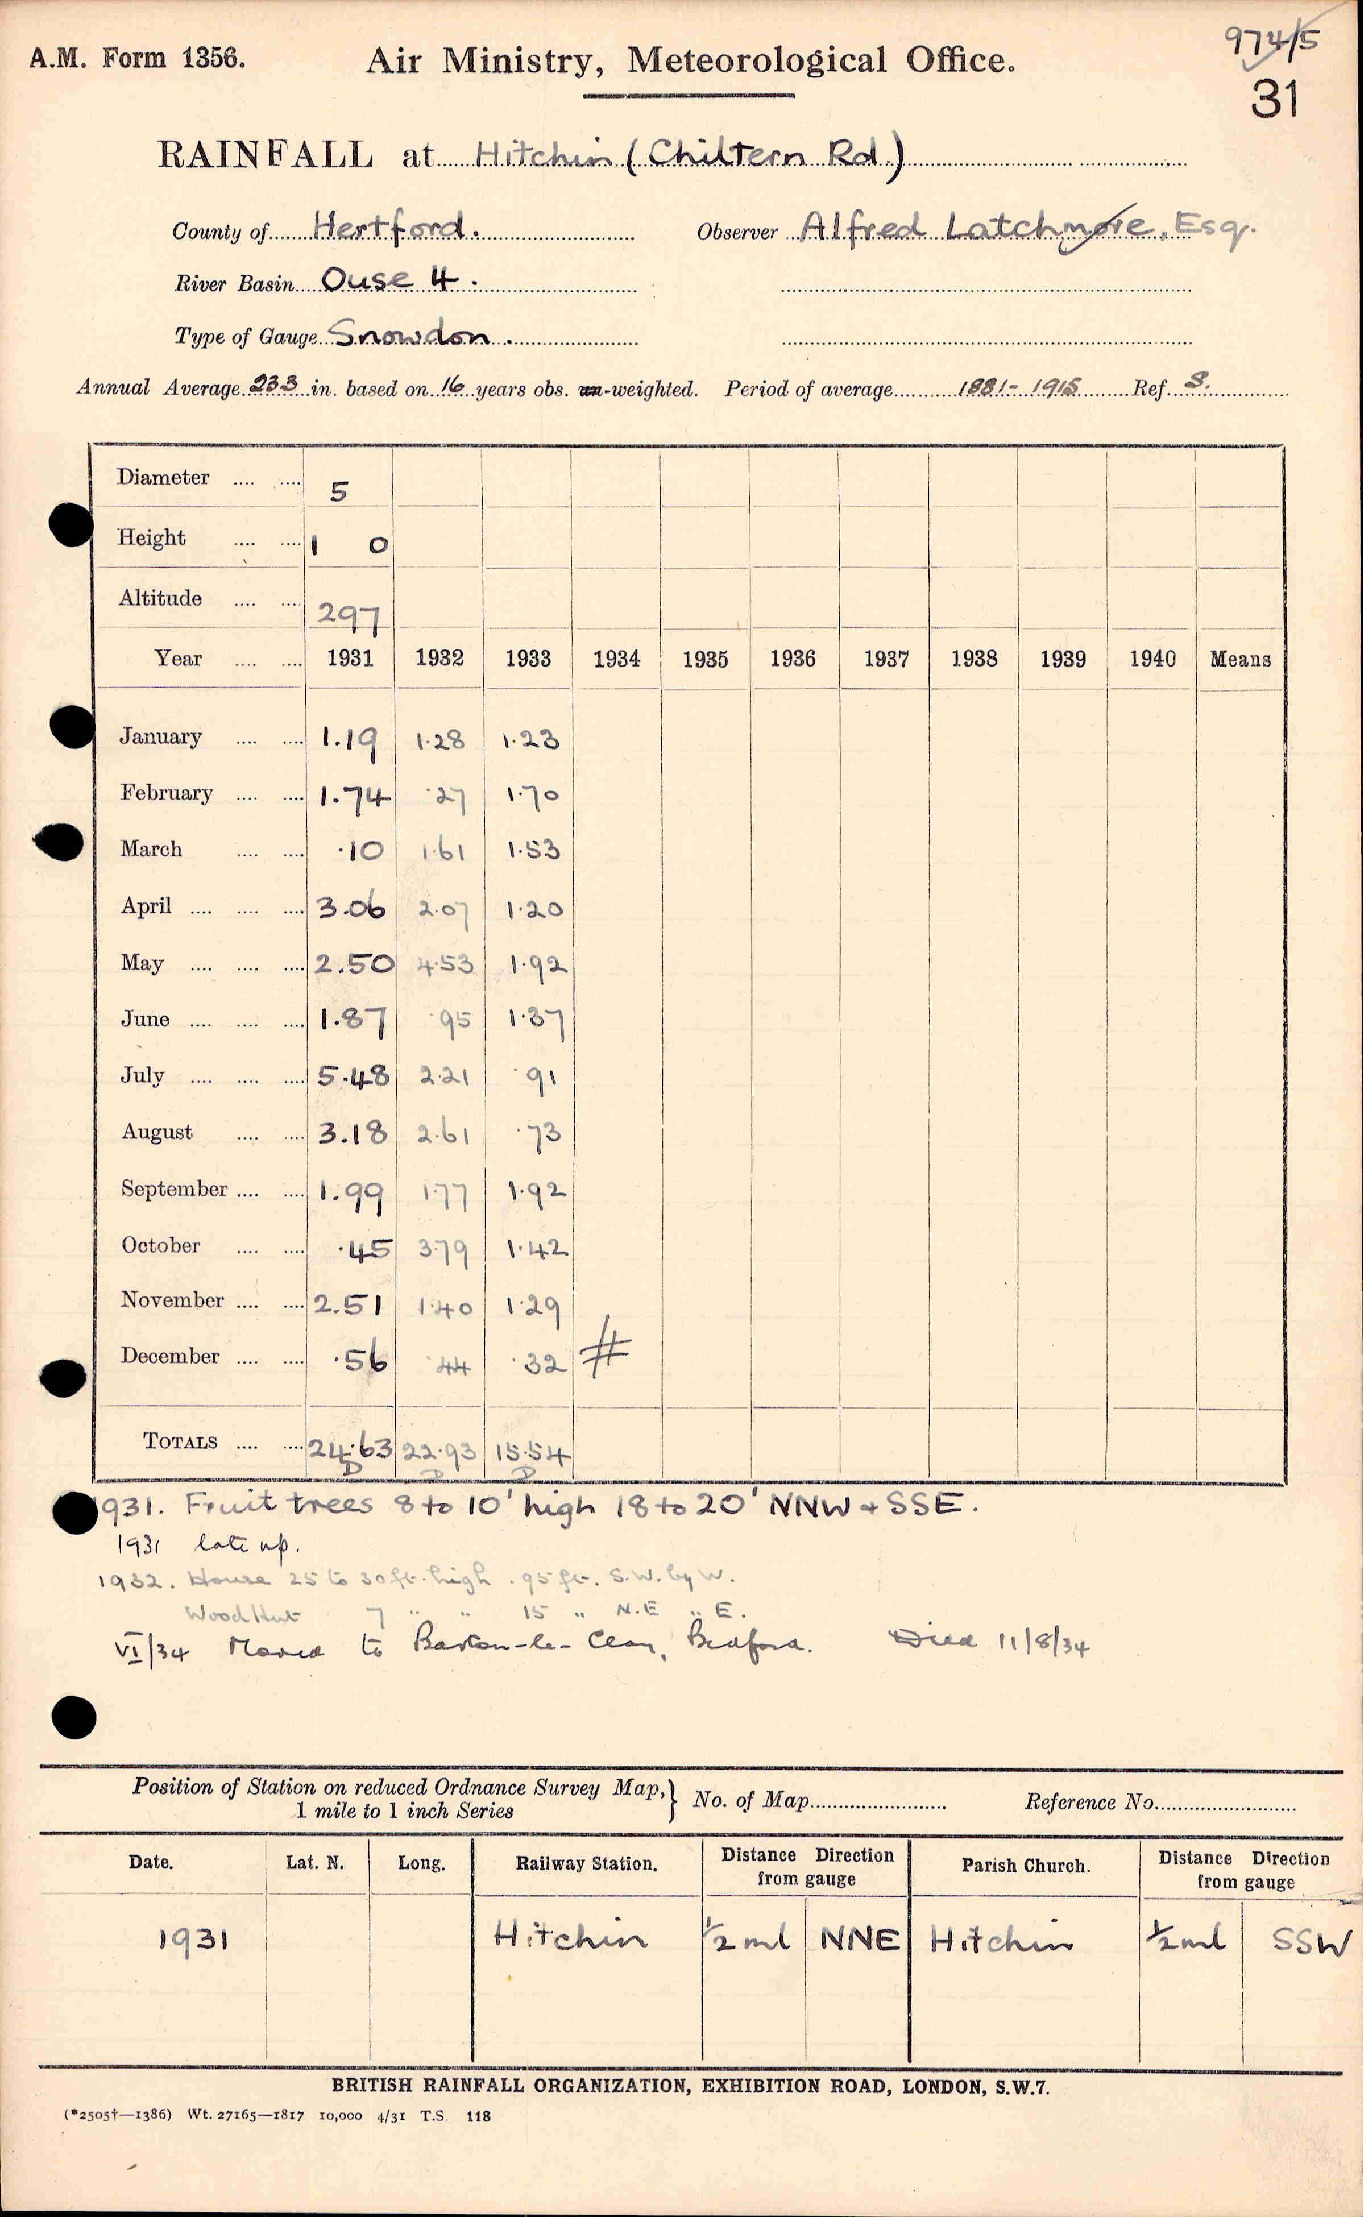 974/5
A.M. Form 1356. Air Ministry, Meteorological Office.
31
RAINFALL at Hitchin (Chiltern Rd.)
County of Hertford. Observer Alfred Latchmore, Esq.
River Basin Ouse 4.
Type of Gauge Snowdon.
Annual Average 23.3 in. based on 16 years obs. un-weighted. Period of average 1881-1915 Ref. S.
Diameter .... .... 5
Height .... .... 1 0
Altitude .... .... 297
Year .... .... 1931 1932 1933 1934 1935 1936 1937 1938 1939 1940 Means
January .... .... 1.19 1.28 1.23
February .... .... 1.74 .27 1.70
March .... .... .10 1.61 1.53
April .... .... .... 3.06 2.07 1.20
May .... .... .... 2.50 4.53 1.92
June .... .... .... 1.87 .95 1.37
July .... .... .... 5.48 2.21 .91
August .... .... 3.18 2.61 .73
September .... .... 1.99 1.77 1.92
October .... .... .45 3.79 1.42
November .... .... 2.51 1.40 1.29
December .... .... .56 .44 .32 #
TOTALS .... .... 24.63 22.93 15.54
D D D
1931. Fruit trees 8 to 10' high 18 to 20' NNW + SSE.
1931 late up.
1932. House 25 to 30 ft. high. 95 ft. S.W. by W.
Wood Hut 7 " " 15 " N.E " E.
VI/34 Moved to Barton-le-Clay, Bedford. Died 11/8/34
Position of Station on reduced Ordnance Survey Map, } No. of Map Reference No.
1 mile to 1 inch Series
Date. Lat. N. Long. Railway Station. Distance Direction from gauge Parish Church. Distance Direction from gauge
1931 Hitchin ½ ml NNE Hitchin ½ ml SSW
BRITISH RAINFALL ORGANIZATION, EXHIBITION ROAD, LONDON, S.W.7.
(*2505†—1386) Wt. 27165—1817 10,000 4/31 T.S. 118